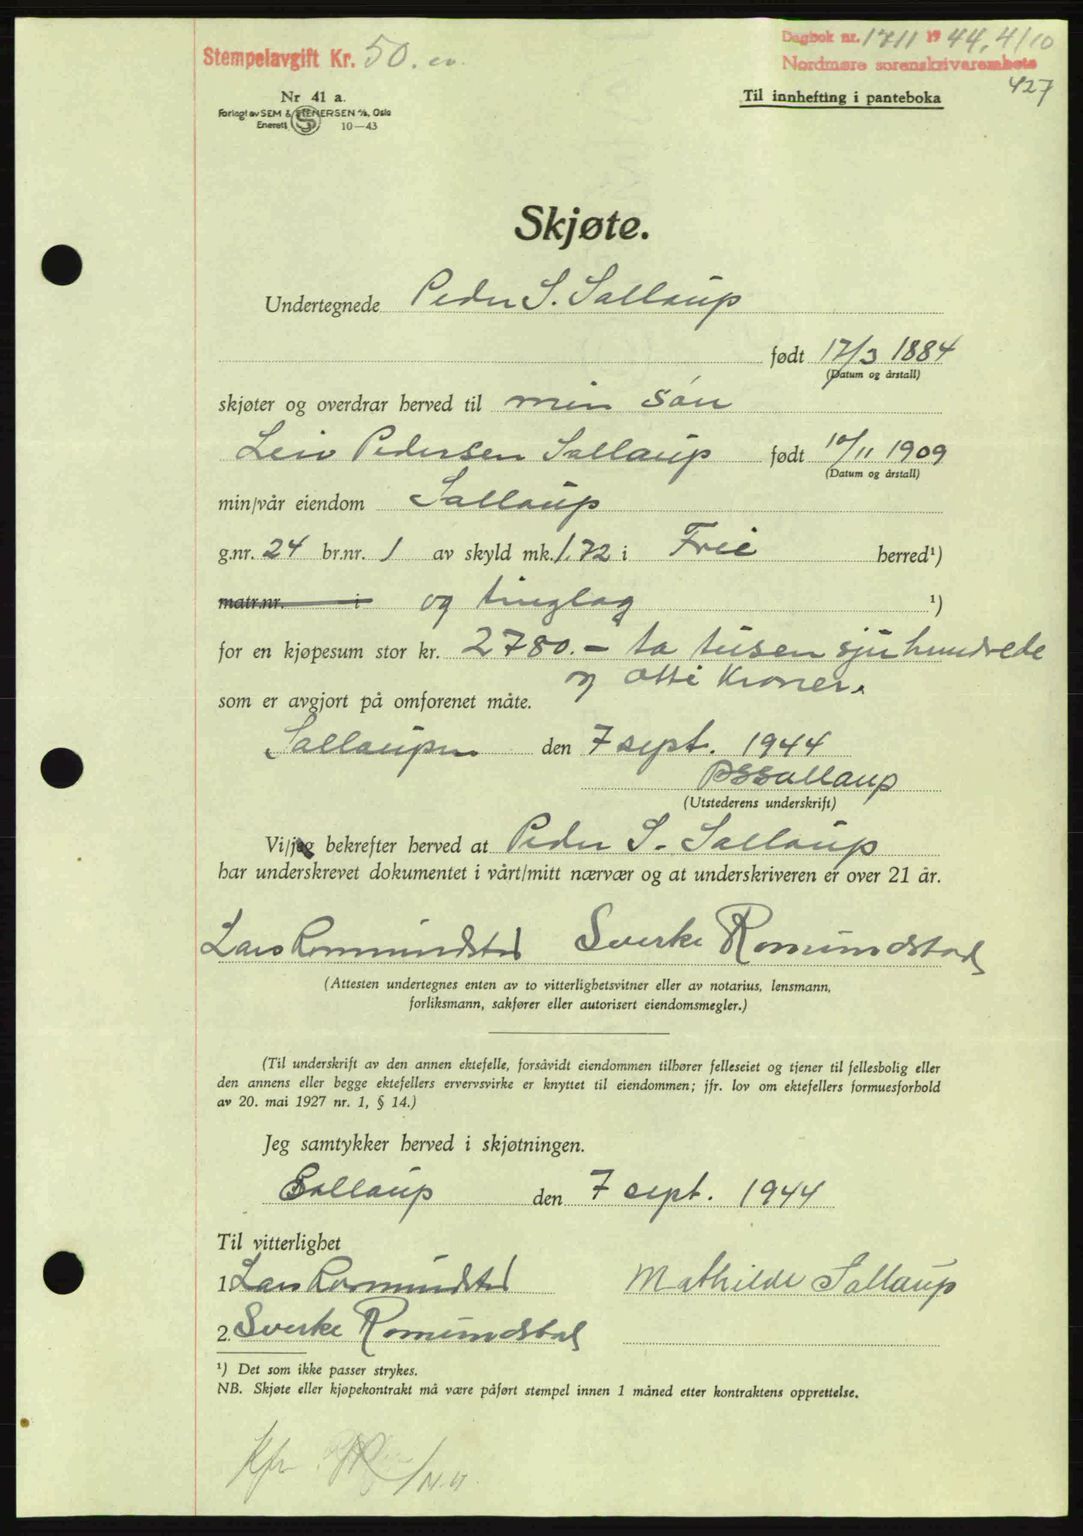 Stempelavgift Kr. 50.
Dagbok nr. 1711 1944, 4/10
Nordmøre sorenskriverembete
427
Nr 41 a.
Forlagt av SEM & STENERSEN A/S, Oslo
Enerett 10—43
Til innhefting i panteboka
Skjøte.
Undertegnede Peder S. Sallaup
født 17/3 1884
(Datum og årstall)
skjøter og overdrar herved til min søn
Leiv Pedersen Sallaup født 10/11 1909
(Datum og årstall)
min/vår eiendom Sallaup
g.nr. 24 br.nr. 1 av skyld mk. 1.72 i Frei herred¹)
matr.nr. i og tinglag ¹)
for en kjøpesum stor kr. 2780.— to tusen sju hundrede
og otti Kroner.
som er avgjort på omforenet måte.
Sallaupen den 7 sept. 1944
PSSallaup
(Utstederens underskrift)
Vi/jeg bekrefter herved at Peder S. Sallaup
har underskrevet dokumentet i vårt/mitt nærvær og at underskriveren er over 21 år.
Lars Romundstad Sverke Romundstad
(Attesten undertegnes enten av to vitterlighetsvitner eller av notarius, lensmann,
forliksmann, sakfører eller autorisert eiendomsmegler.)
(Til underskrift av den annen ektefelle, forsåvidt eiendommen tilhører felleseiet og tjener til fellesbolig eller
den annens eller begge ektefellers ervervsvirke er knyttet til eiendommen; jfr. lov om ektefellers formuesforhold
av 20. mai 1927 nr. 1, § 14.)
Jeg samtykker herved i skjøtningen.
Sallaup den 7 sept. 1944
Til vitterlighet
1. Lars Romundstad Mathilde Sallaup
2. Sverke Romundstad
¹) Det som ikke passer strykes.
NB. Skjøte eller kjøpekontrakt må være påført stempel innen 1 måned etter kontraktens opprettelse.